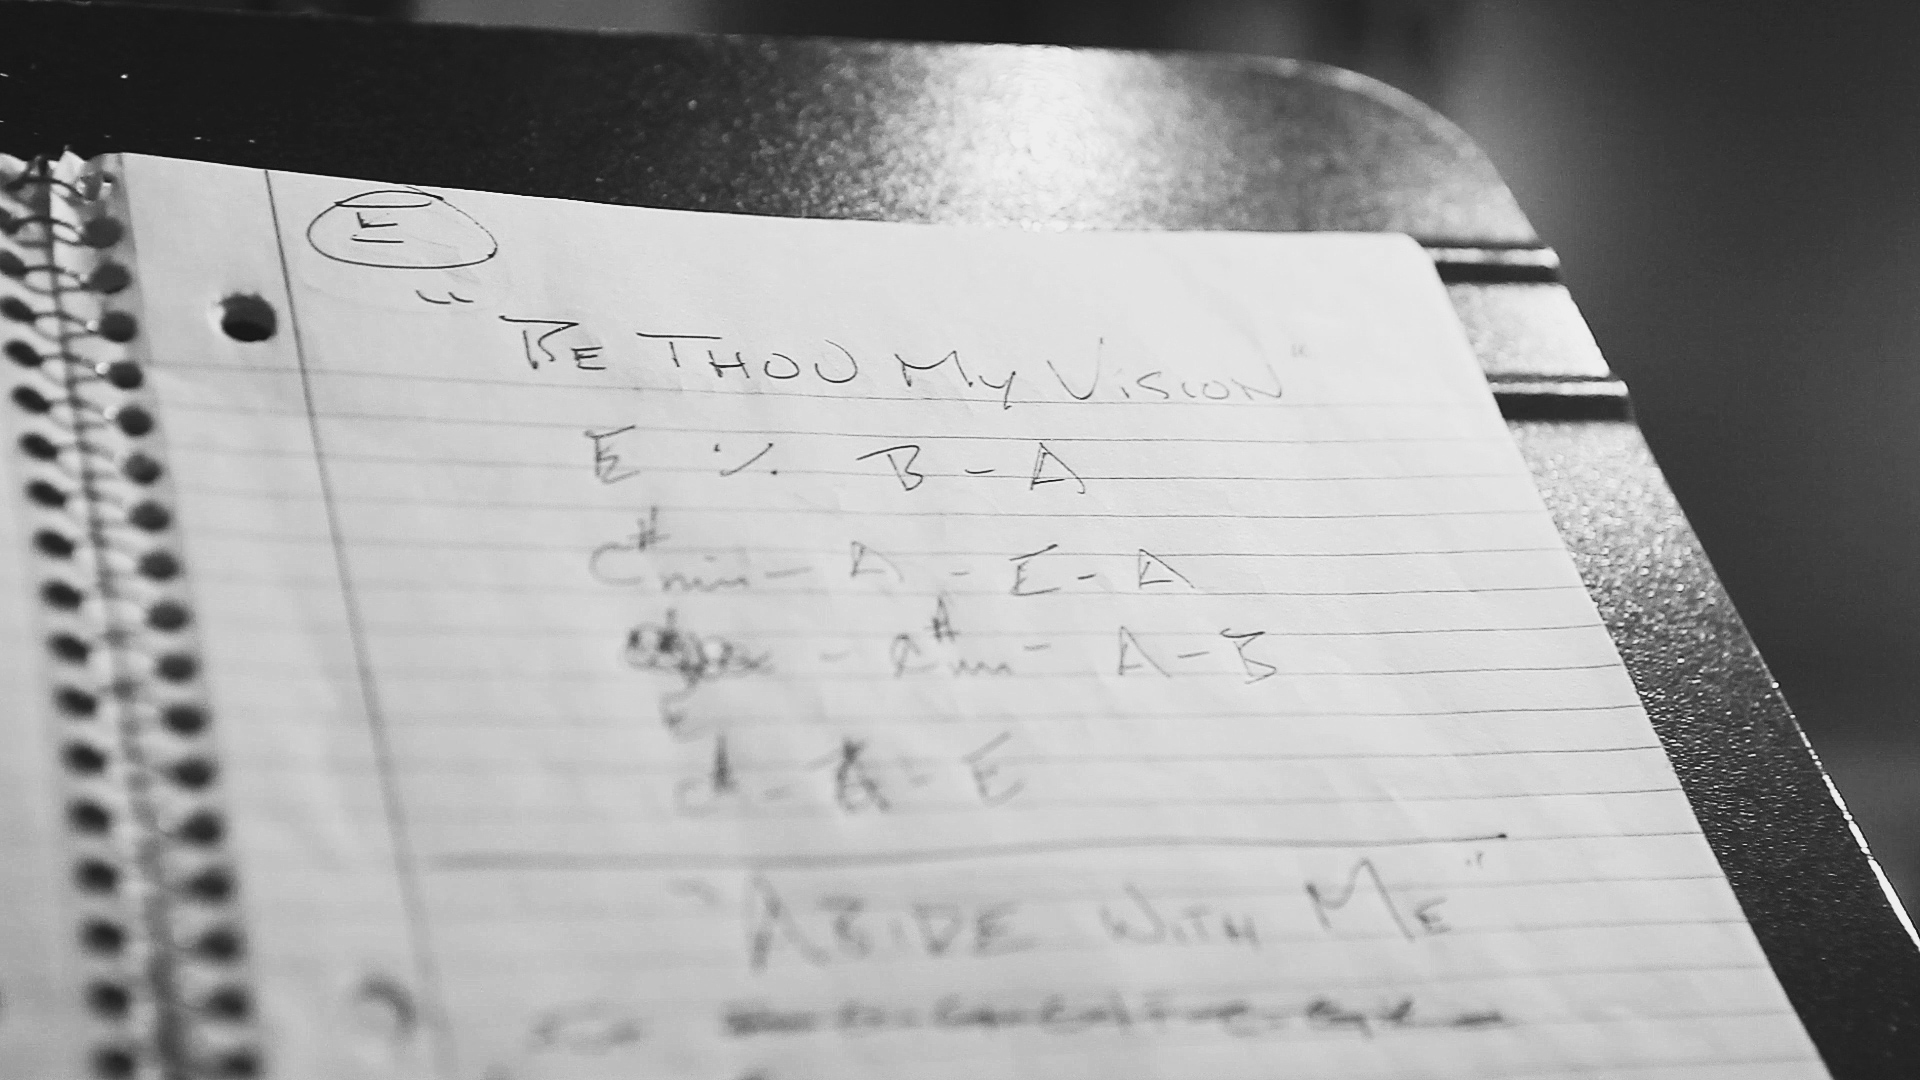 E
"BE THOU MY VISION"
E ٪ B - A
C#min - A - E - A
- C#m - A - B
E
A - - E
"ABIDE WITH ME"